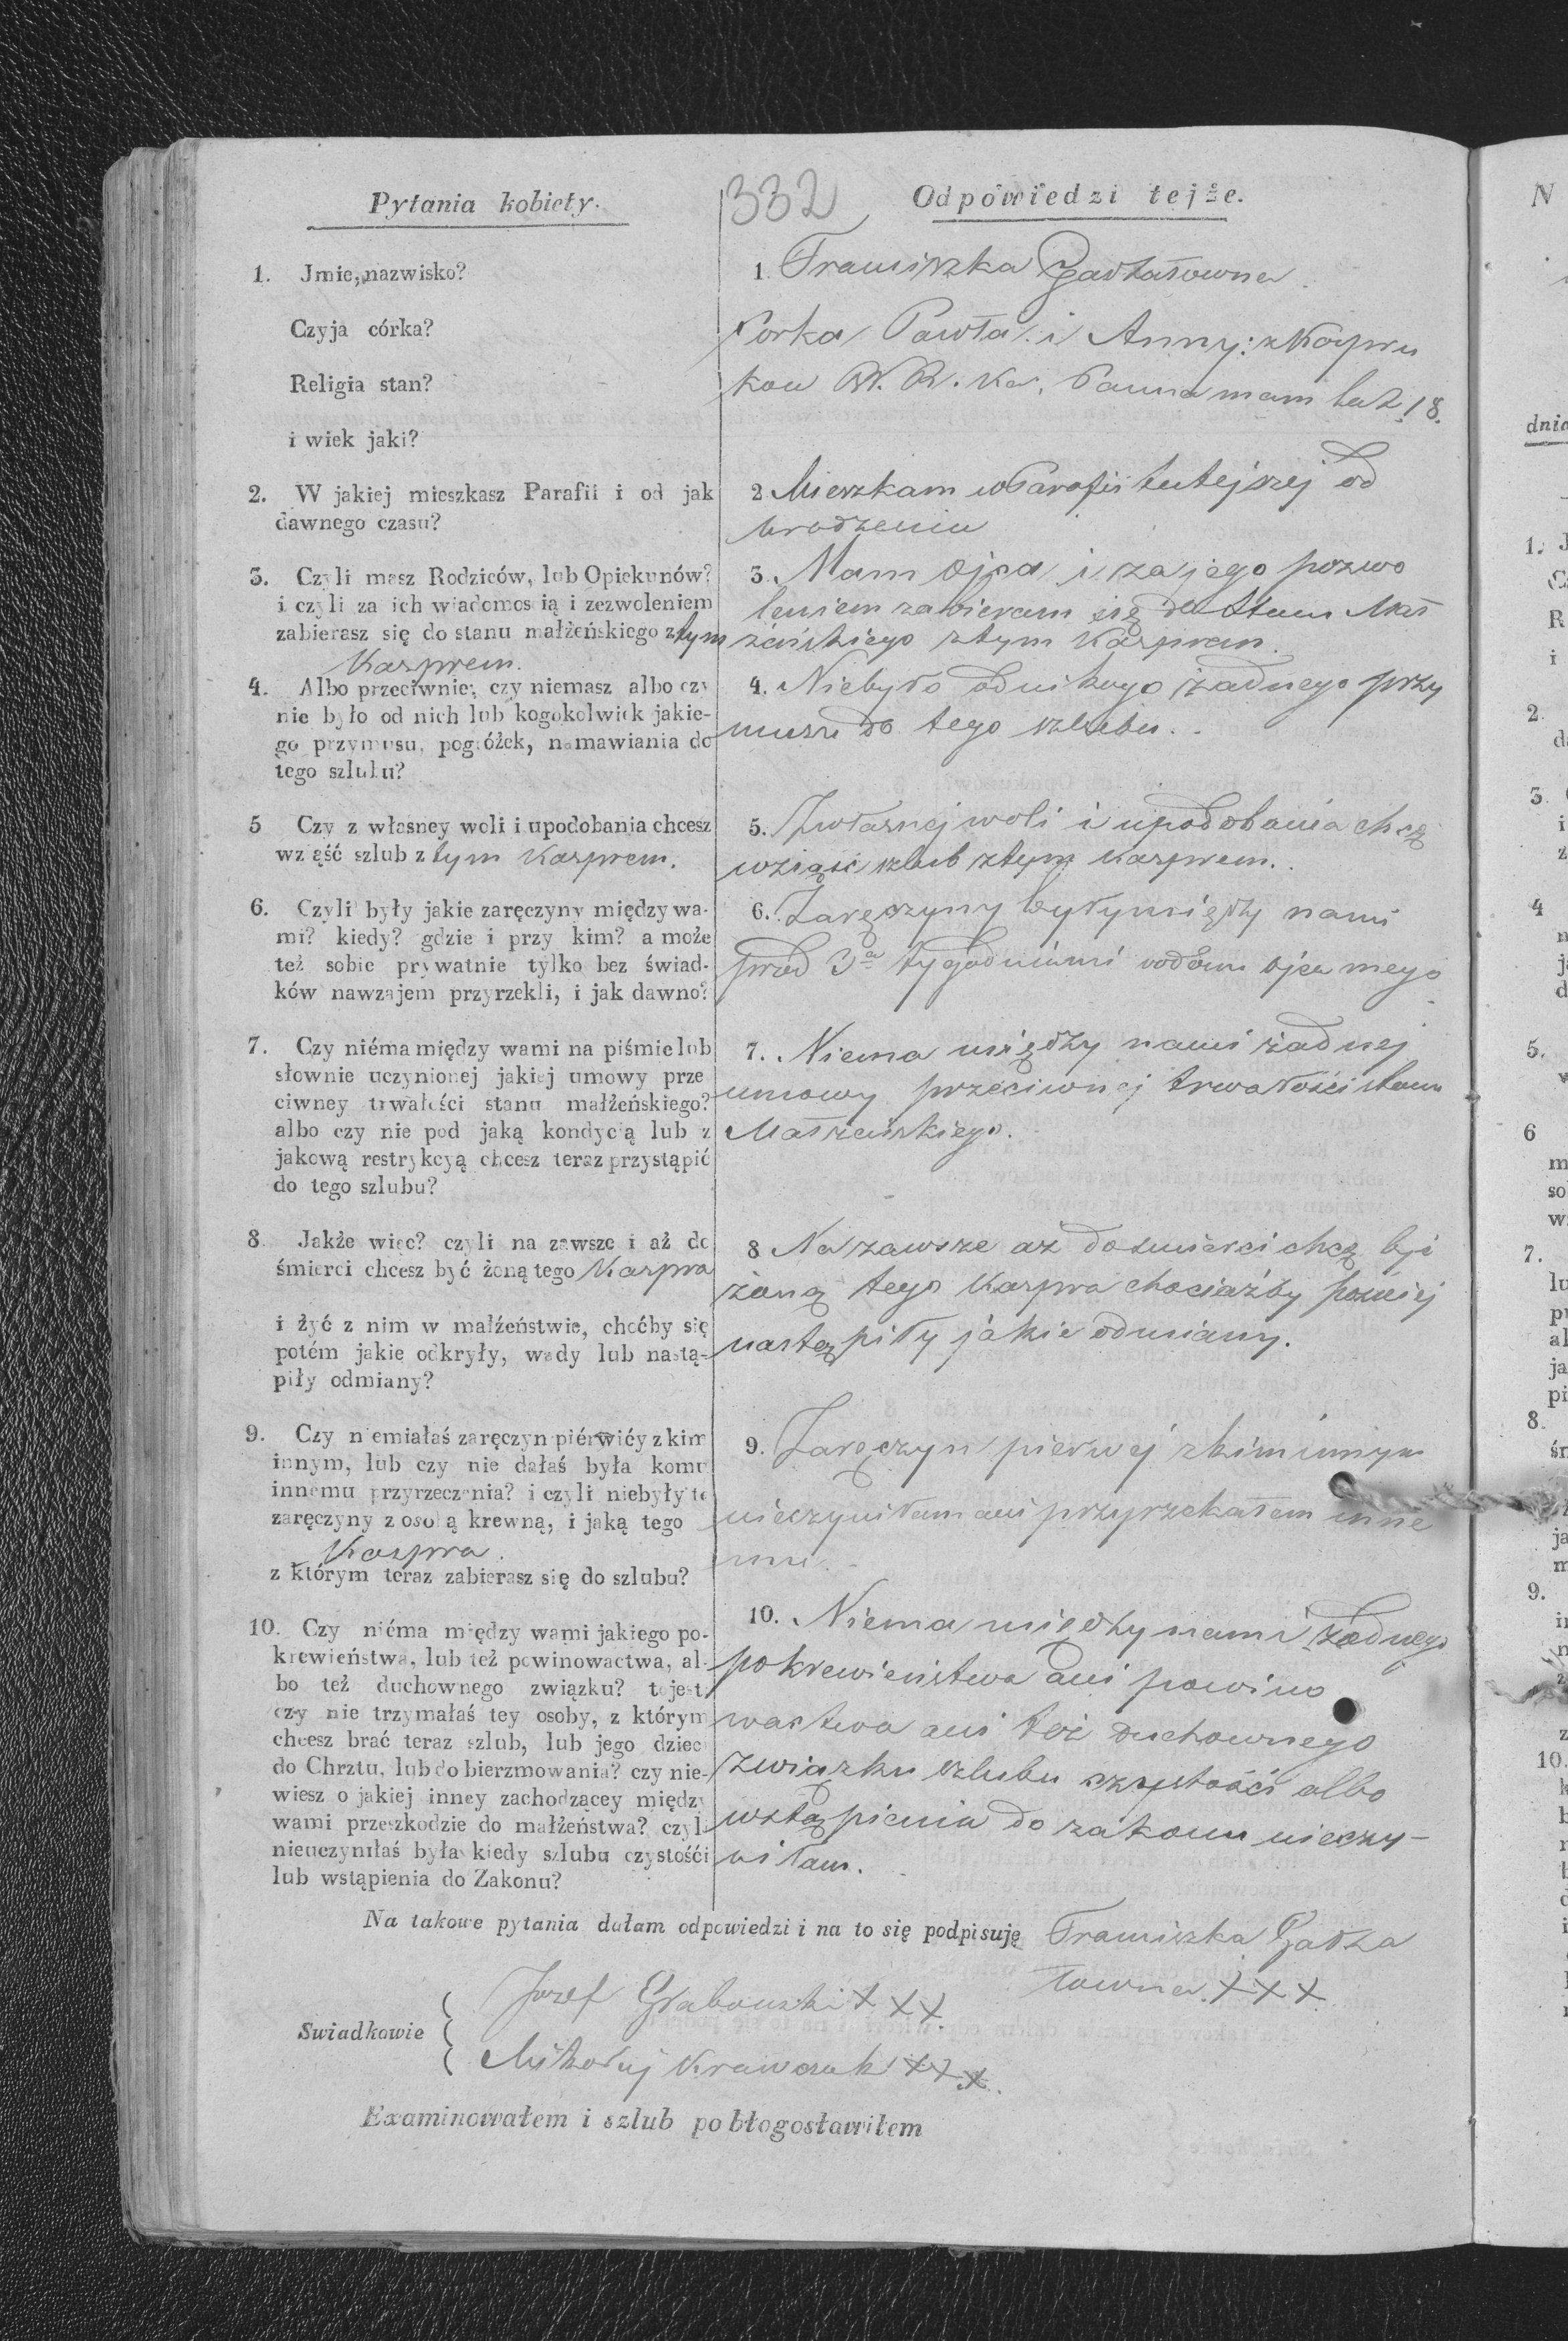 332
Pytania kobiety.
Odpowiedzi tejże.
1. Jmie, nazwisko?
Czyja córka?
Religia stan?
i wiek jaki?
1. Franciszka
Corka Pawła i Anny: z
R. Ka. Panna mam lat 18.
2. W jakiej mieszkasz Parafii i od jak
dawnego czasu?
2 Mieszkam w Parafii tutejszej od
urodzeniu
3. Czyli masz Rodziców, lub Opiekunów?
i czyli za ich wiadomością i zezwoleniem
zabierasz się do stanu małżeńskiego z tym
Kasprem.
3. Mam Ojca i za jego pozwo
leniem zabieram się do Stanu Mał
żeńskiego z tym Kasprem.
4. Albo przeciwnie, czy niemasz albo czy
nie było od nich lub kogokolwiek jakie-
go przymusu, pogróżek, namawiania do
tego szlubu?
4. Niebyło od nikogo żadnego przy
musu do tego szlubu.
5 Czy z własney woli i upodobania chcesz
wziąść szlub z tym Kasprem.
5. Zwłasnej woli i upodobania chcę
wziąść szlub z tym Kasprem.
6. Czyli były jakie zaręczyny między wa-
mi? kiedy? gdzie i przy kim? a może
też sobie prywatnie tylko bez świad-
ków nawzajem przyrzekli, i jak dawno?
6. Zaręczyny były między nami
przed 3a tygodniami wdomu ojca mego
7. Czy niéma między wami na piśmie lub
słownie uczynionej jakiej umowy prze
ciwney trwałości stanu małżeńskiego?
albo czy nie pod jaką kondycią lub z
jakową restrykcyą chcesz teraz przystąpić
do tego szlubu?
7. Niema między nami żadnej
umowy przeciwnej trwałości stanu
Małżeńskiego.
8. Jakże więc? czyli na zawsze i aż do
śmierci chcesz być żoną tego Kaspra
i żyć z nim w małżeństwie, choćby się
potém jakie odkryły, wady lub nastą-
piły odmiany?
8 Na zawsze aż do śmierci chcę być
żoną tego Kaspra chociażby pozniej
nastąpiły jakie odmiany.
9. Czy niemiałaś zaręczyn piérwićy z kim
innym, lub czy nie dałaś była komu
innemu przyrzeczenia? i czyli niebyły te
zaręczyny z osobą krewną, i jaką tego
Kaspra.
z którym teraz zabierasz się do szlubu?
9. Zaręczyn pierwej zkim innym
nieczyniłam ani przyrzekałem inne
mu.
10. Czy niéma między wami jakiego po-
krewieństwa, lub też powinowactwa, al-
bo też duchownego związku? to jest
czy nie trzymałaś tey osoby, z którym
chcesz brać teraz szlub, lub jego dzieci
do Chrztu, lub do bierzmowania? czy nie-
wiesz o jakiej inney zachodzącey między
wami przeszkodzie do małżeństwa? czyli
nieuczyniłaś była kiedy szlubu czystośći
lub wstąpienia do Zakonu?
10. Niema między nami żadnego
pokrewieństwa ani powino
wactwa ani też duchownego
związku szlubu czystości albo
wstąpienia do zakonu nieczy-
niłam.
Na takowe pytania dałam odpowiedzi i na to się podpisuję Franciszka
łowna. +++
Swiadkowie
Jozef Grabowski +++
Mikołaj Krawczuk +++
Examinowałem i szlub pobłogosławiłem